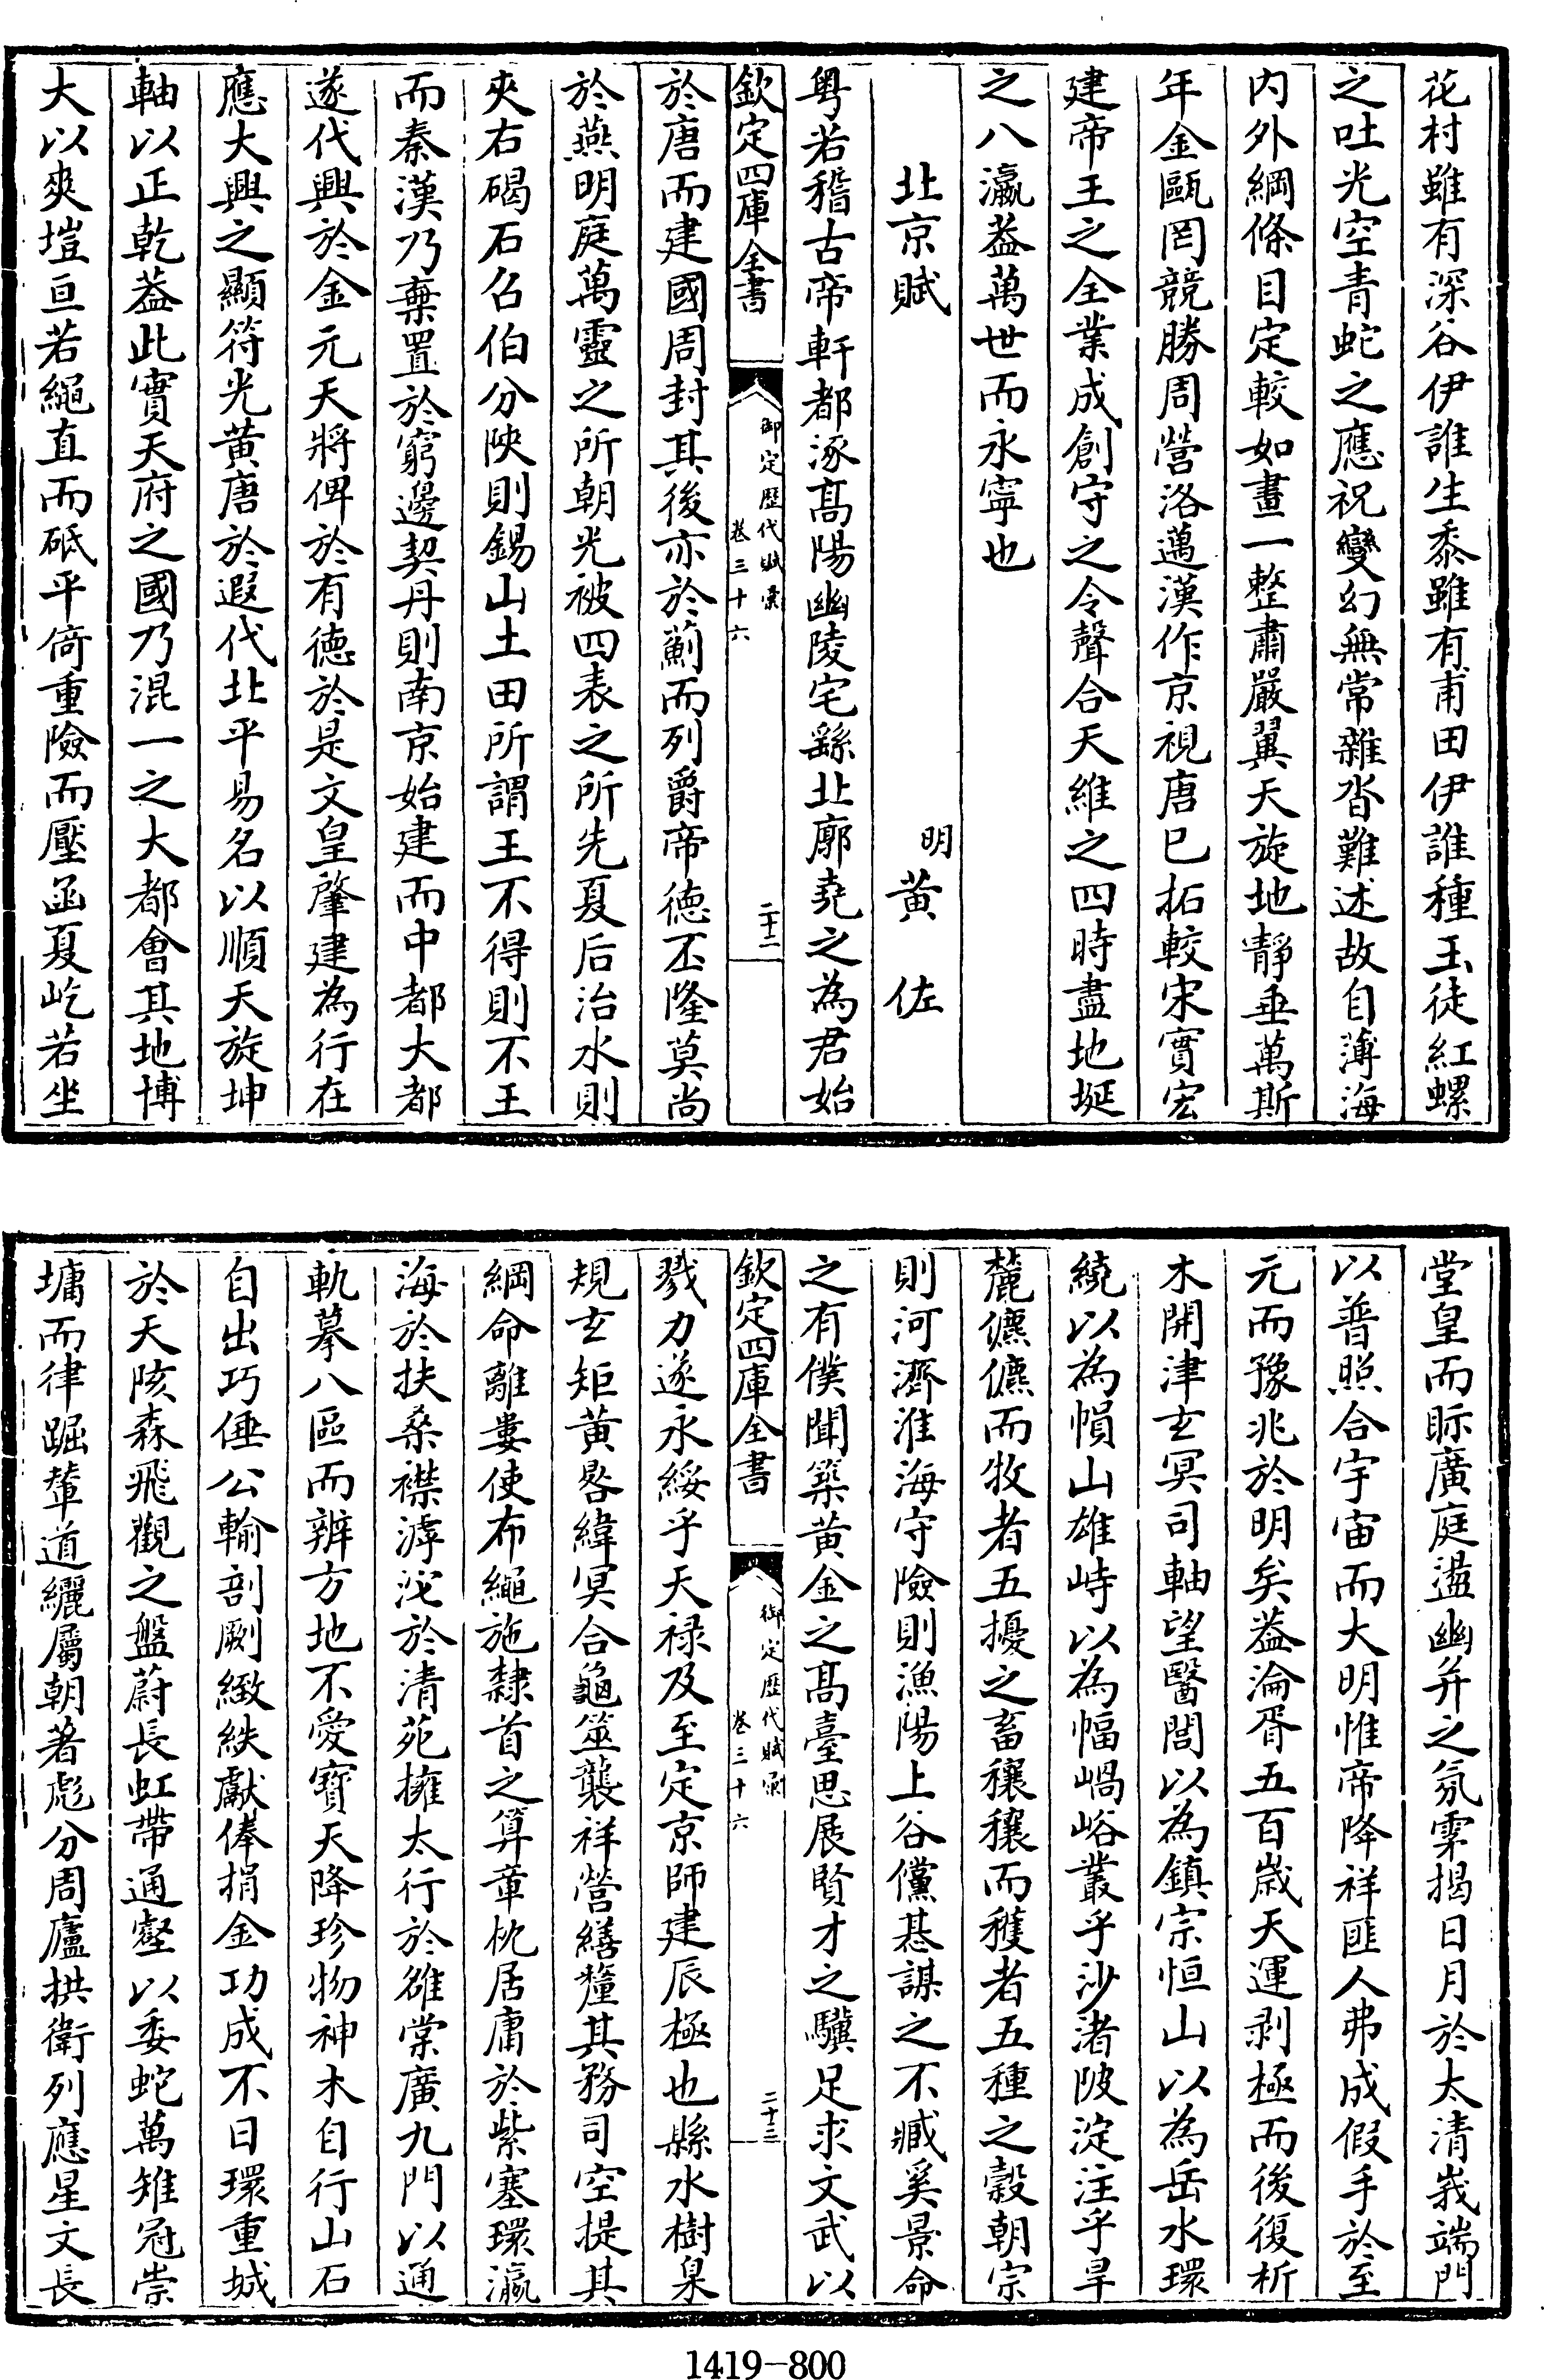 花村雖有深谷伊誰生黍雖有甫田伊誰種玉徒紅螺
之吐光空青蛇之應祝變幻無常雜沓難述故自薄海
內外綱條目定較如畫一整肅嚴翼天旋地靜垂萬斯
年金甌罔競勝周營洛邁漢作京視唐已拓較宋實宏
建帝王之全業成創守之令聲合天維之四時盡地埏
之八瀛葢萬世而永寧也
北京賦
明黄佐
粤若稽古帝軒都涿髙陽幽陵宅繇北廓堯之為君始
欽定四庫全書
御定歴代賦彙
卷三十六
二十二
於唐而建國周封其後亦於薊而列爵帝德丕隆莫尚
於燕明庭萬靈之所朝光被四表之所先夏后治水則
夾右碣石召伯分陜則錫山土田所謂王不得則不王
而秦漢乃棄置於窮邊契丹則南京始建而中都大都
遂代興於金元天將俾於有德於是文皇肇建為行在
應大興之顯符光黄唐於遐代北平易名以順天旋坤
軸以正乾葢此實天府之國乃混一之大都會其地博
大以爽塏亘若繩直而砥平倚重險而壓函夏屹若坐
堂皇而眎廣庭盪幽并之氛雺揭日月於太清峩端門
以普照合宇宙而大明惟帝降祥匪人弗成假手於至
元而豫兆於明矣葢淪胥五百歳天運剥極而後復析
木開津玄冥司軸望醫閭以為鎮宗恒山以為岳水環
繞以為幀山雄峙以為幅崵峪叢乎沙渚陂淀注乎旱
麓儦儦而牧者五擾之畜穰穰而穫者五種之穀朝宗
則河濟淮海守險則漁陽上谷儻惎謀之不臧奚景命
之有僕聞築黄金之髙臺思展賢才之驥足求文武以
欽定四庫全書
御定歴代賦彙
卷三十六
二十三
戮力遂永綏乎天禄及至定京師建辰極也縣水樹臬
規玄矩黄晷緯冥合龜筮襲祥營繕釐其務司空提其
綱命離婁使布繩施隸首之算章枕居庸於紫塞環瀛
海於扶桑襟滹沱於清苑擁太行於雒棠廣九門以通
軌摹八區而辨方地不愛寳天降珍物神木自行山石
自出巧倕公輸剖劂緻紩獻俸捐金功成不日環重城
於天陔森飛觀之盤蔚長虹帶通壑以委蛇萬雉冠崇
墉而嵂崛輦道纚屬朝著彪分周廬拱衛列應星文長
1419-800